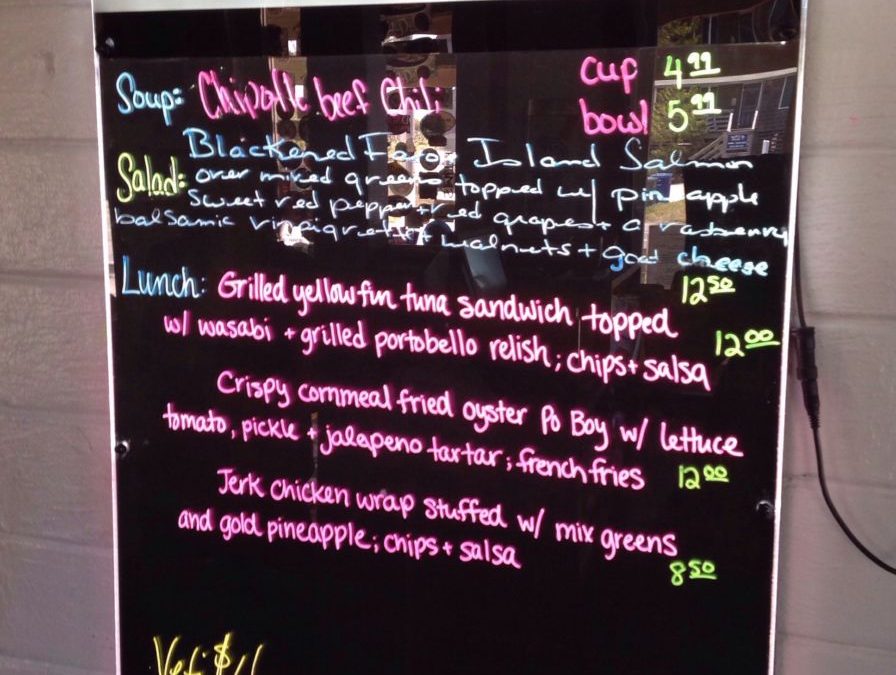 Soup: Chipotle beef Chili cup 4.99
bowl 5.99
Salad: Blackened Faroe Island Salmon
over mixed greens topped w/ pineapple
sweet red pepper + red grapes + a rasberry
balsamic vinaigrette + walnuts + goat cheese
12.50
Lunch: Grilled yellowfin tuna sandwich topped
w/ wasabi + grilled portobello relish; chips + salsa 12.00
Crispy cornmeal fried oyster Po Boy w/ lettuce
tomato, pickle + jalapeno tartar; french fries 12.00
Jerk chicken wrap stuffed w/ mix greens
and gold pineapple; chips + salsa
8.50